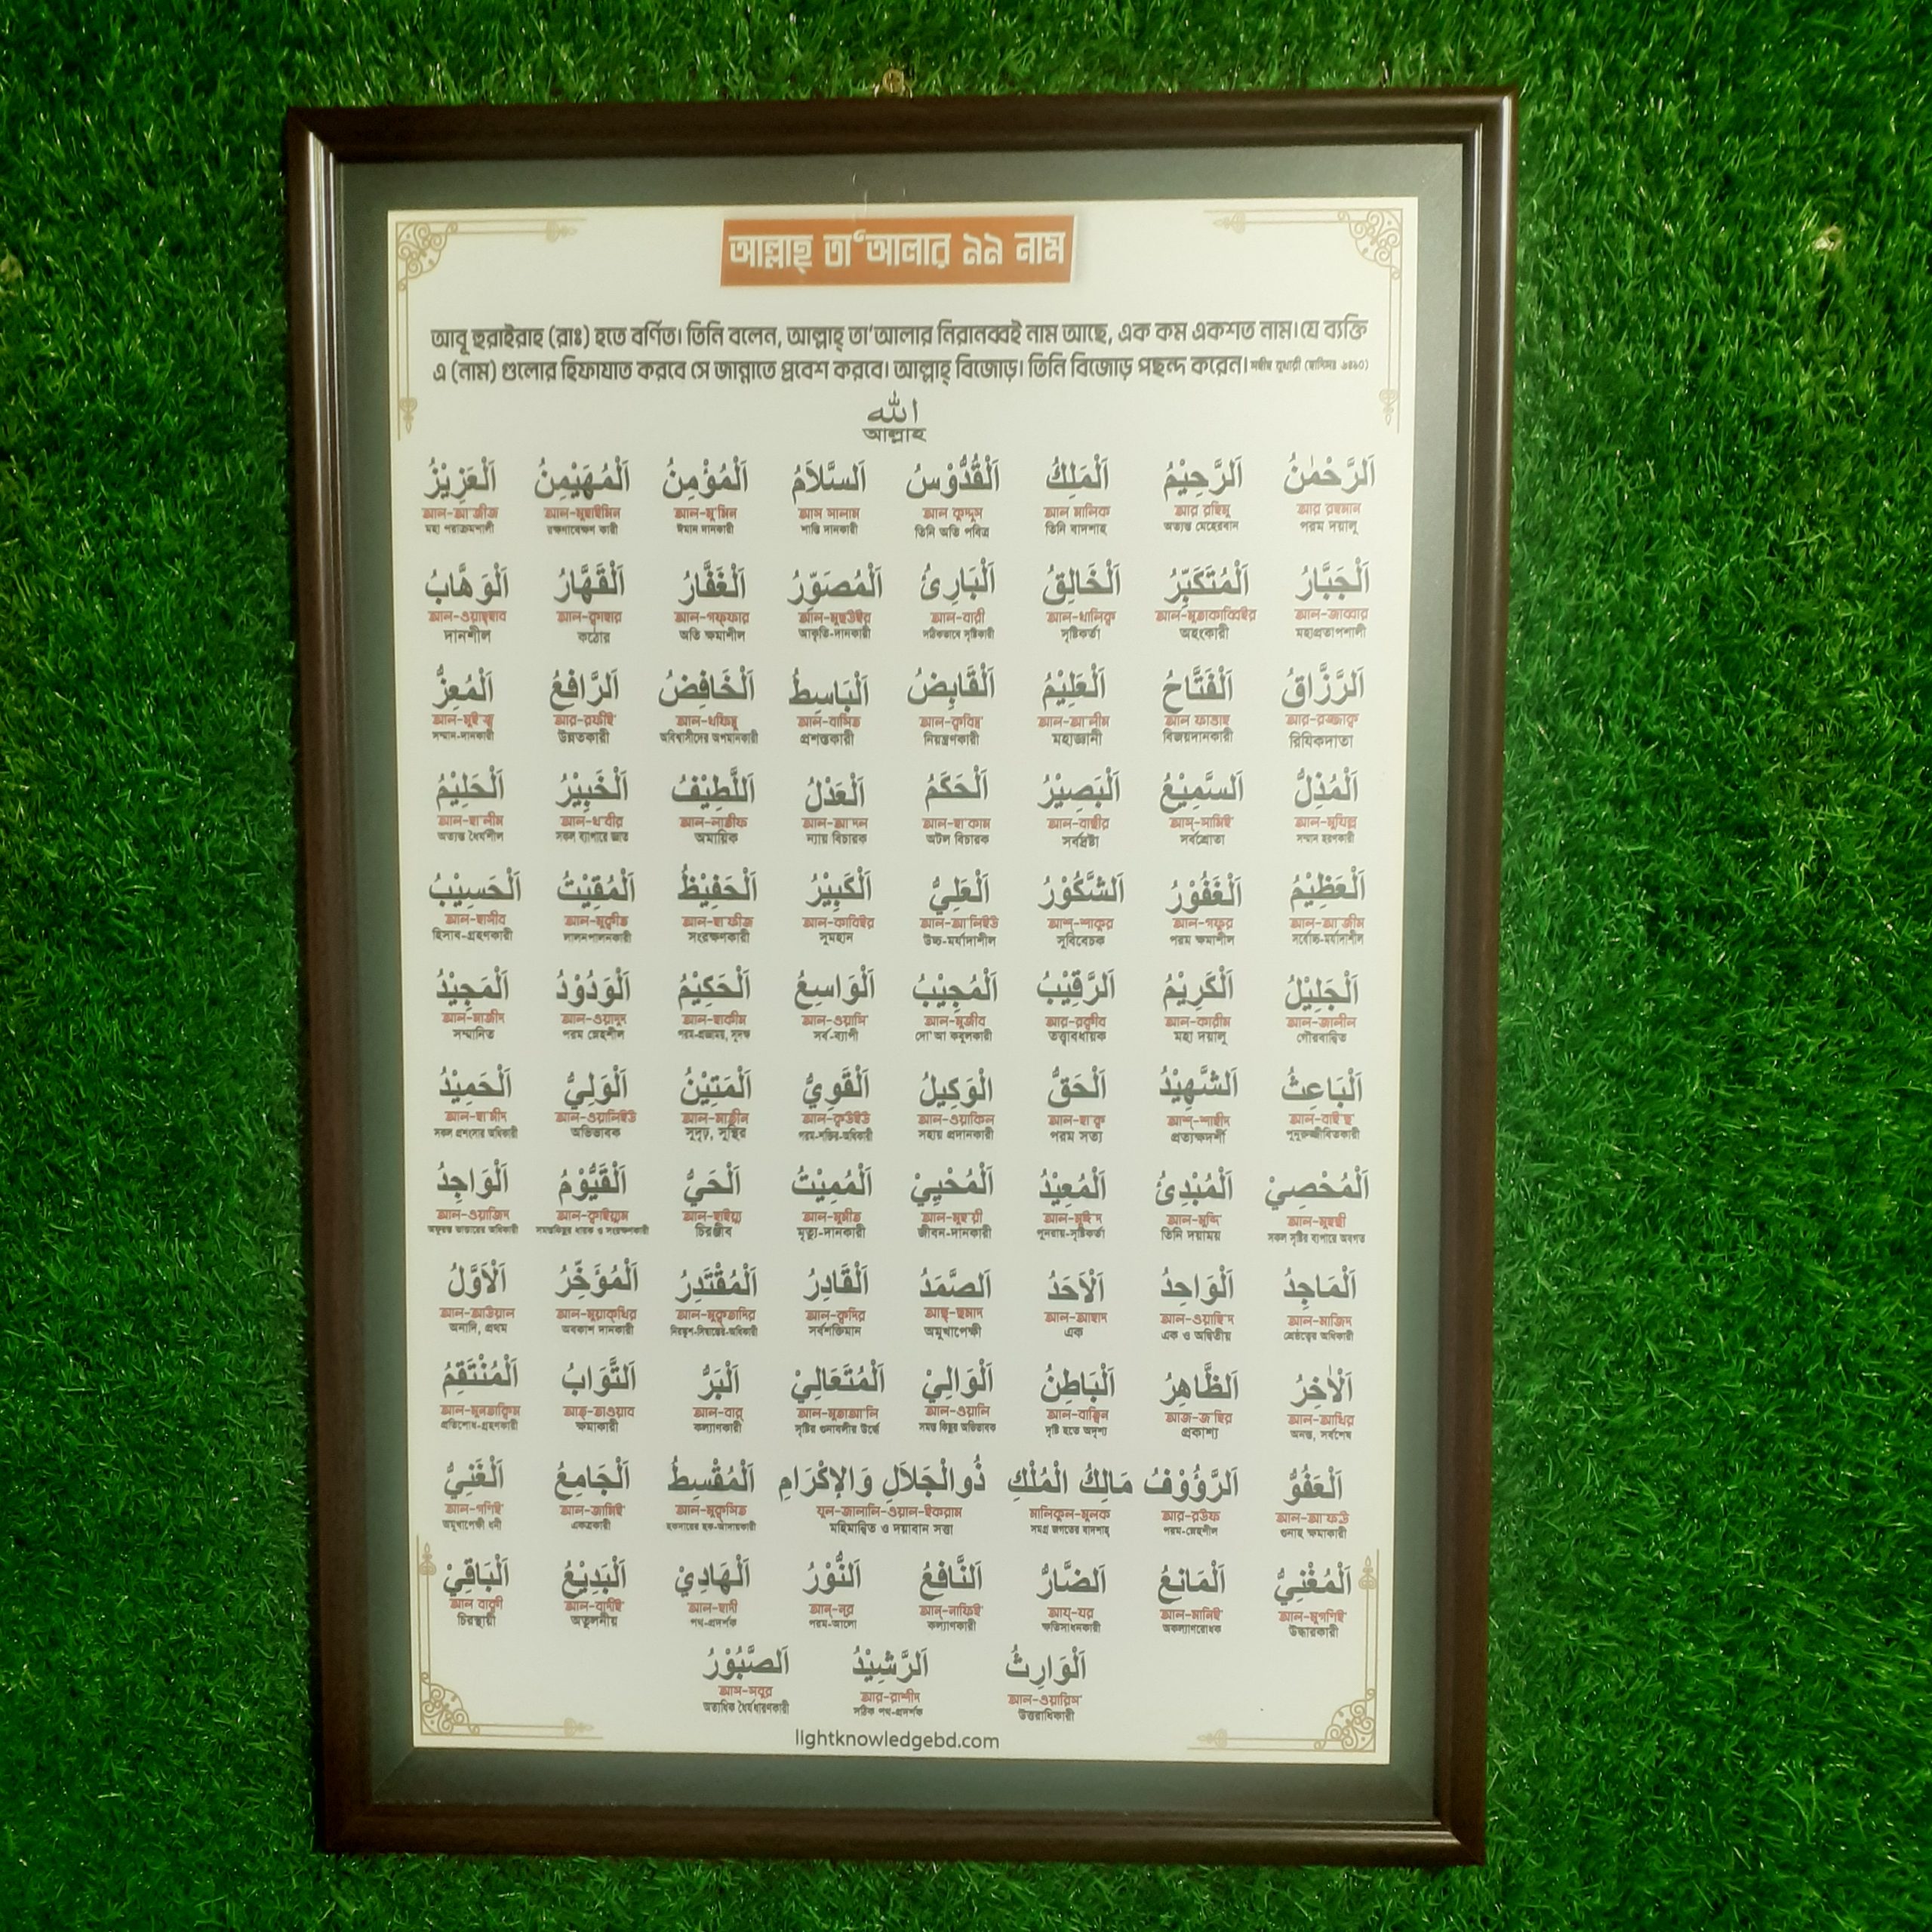 আল্লাহ্ তা‘আলার ৯৯ নাম
আবূ হুরাইরাহ (রাঃ) হতে বর্ণিত। তিনি বলেন, আল্লাহ্ তা‘আলার নিরানব্বই নাম আছে, এক কম একশত নাম। যে ব্যক্তি
এ (নাম) গুলোর হিফাযাত করবে সে জান্নাতে প্রবেশ করবে। আল্লাহ্ বিজোড়। তিনি বিজোড় পছন্দ করেন। সহীহ বুখারী
الله
আল্লাহ
اَلرَّحْمٰنُ اَلرَّحِيْمُ اَلْمَلِكُ اَلْقُدُّوْسُ اَلسَّلاَمُ اَلْمُؤْمِنُ اَلْمُهَيْمِنُ اَلْعَزِيْزُ
আর রহমান আর রহিমু আল মালিক আল কুদ্দুস আস সালাম আল-মু'মিন আল-মুহাইমিন আল-আ'জীজ
পরম দয়ালু অত্যন্ত মেহেরবান তিনি বাদশাহ তিনি অতি পবিত্র শান্তি দানকারী ঈমান দানকারী রক্ষণাবেক্ষণ কারী মহা পরাক্রমশালী
اَلْجَبَّارُ اَلْمُتَكَبِّرُ اَلْخَالِقُ اَلْبَارِئُ اَلْمُصَوِّرُ اَلْغَفَّارُ اَلْقَهَّارُ اَلْوَهَّابُ
আল-জাব্বার আল-মুতাকাব্বিইর আল-খালিক্ব আল-বারী আল-মুছউইর আল-গফ্ফার আল-ক্বাহার আল-ওয়াহ্হাব
মহাপ্রতাপশালী অহংকারী সৃষ্টিকর্তা সঠিকভাবে সৃষ্টিকারী আকৃতি-দানকারী অতি ক্ষমাশীল কঠোর দানশীল
اَلرَّزَّاقُ اَلْفَتَّاحُ اَلْعَلِيْمُ اَلْقَابِضُ اَلْبَاسِطُ اَلْخَافِضُ اَلرَّافِعُ اَلْمُعِزُّ
আর-রজ্জাক্ব আল ফাত্তাহ আল-আ'লীম আল-ক্ববিদ্ব' আল-বাসিত আল-খফিদ্বু আর-রফীই' আল-মুই'জ্বু
রিযিকদাতা বিজয়দানকারী মহাজ্ঞানী নিয়ন্ত্রণকারী প্রশস্তকারী অবিশ্বাসীদের অপমানকারী উন্নতকারী সম্মান-দানকারী
اَلْمُذِلُّ اَلسَّمِيْعُ اَلْبَصِيْرُ اَلْحَكَمُ اَلْعَدْلُ اَللَّطِيْفُ اَلْخَبِيْرُ اَلْحَلِيْمُ
আল-মুযিল্ল আস্-সামিই' আল-বাছীর আল-হা'কাম আল-আ'দল আল-লাতীফ আল-খ'বীর আল-হা'লীম
সম্মান হরণকারী সর্বশ্রোতা সর্বদ্রষ্টা অটল বিচারক ন্যায় বিচারক অমায়িক সকল ব্যাপারে জ্ঞাত অত্যন্ত ধৈর্যশীল
اَلْعَظِيْمُ اَلْغَفُوْرُ اَلشَّكُوْرُ اَلْعَلِيُّ اَلْكَبِيْرُ اَلْحَفِيْظُ اَلْمُقِيْتُ اَلْحَسِيْبُ
আল-আ'জীম আল-গফুর আশ্-শাকুর আল-আ'লিইউ আল-কাবিইর আল-হা'ফীজ আল-মুক্বীত আল-হাসীব
সর্বোচ্চ-মর্যাদাশীল পরম ক্ষমাশীল সুবিবেচক উচ্চ-মর্যাদাশীল সুমহান সংরক্ষণকারী লালনপালনকারী হিসাব-গ্রহণকারী
اَلْجَلِيْلُ اَلْكَرِيْمُ اَلرَّقِيْبُ اَلْمُجِيْبُ اَلْوَاسِعُ اَلْحَكِيْمُ اَلْوَدُوْدُ اَلْمَجِيْدُ
আল-জালীল আল-কারীম আর-রক্বীব আল-মুজীব আল-ওয়াসি' আল-হাকীম আল-ওয়াদুদ আল-মাজীদ
গৌরবান্বিত মহা দয়ালু তত্ত্বাবধায়ক দো'আ কবুলকারী সর্ব-ব্যাপী পরম-প্রজ্ঞাময়, সুদক্ষ পরম স্নেহশীল সম্মানিত
اَلْبَاعِثُ اَلشَّهِيْدُ اَلْحَقُّ الْوَكِيلُ اَلْقَوِيُّ اَلْمَتِيْنُ اَلْوَلِيُّ اَلْحَمِيْدُ
আল-বাই'ছ' আশ্-শাহীদ আল-হা'ক্ব আল-ওয়াকিল আল-ক্বউইউ আল-মাতীন আল-ওয়ালিইউ আল-হা'মীদ
পুনুরুজ্জীবিতকারী প্রত্যক্ষদর্শী পরম সত্য সহায় প্রদানকারী পরম-শক্তির-অধিকারী সুদৃঢ়, সুস্থির অভিভাবক সকল প্রশংসার অধিকারী
اَلْمُحْصِيْ اَلْمُبْدِئُ اَلْمُعِيْدُ اَلْمُحْيِيْ اَلْمُمِيْتُ اَلْحَيُّ اَلْقَيُّوْمُ اَلْوَاجِدُ
আল-মুহছী আল-মুব্দি আল-মুঈ'দ আল-মুহ'য়ী আল-মুমীত আল-হাইয়্যু আল-ক্বাইয়্যুম আল-ওয়াজিদ
সকল সৃষ্টির ব্যাপারে অবগত তিনি দয়াময় পুনরায়-সৃষ্টিকর্তা জীবন-দানকারী মৃত্যু-দানকারী চিরঞ্জীব সমস্তকিছুর ধারক ও সংরক্ষণকারী অফুরন্ত ভান্ডারের অধিকারী
اَلْمَاجِدُ اَلْوَاحِدُ اَلْاَحَدُ اَلصَّمَدُ اَلْقَادِرُ اَلْمُقْتَدِرُ اَلْمُؤَخِّرُ اَلْاَوَّلُ
আল-মাজিদ আল-ওয়াহি'দ আল-আহাদ আছ্-ছমাদ আল-ক্বদির আল-মুক্ব্তাদির আল-মুয়াক্খির আল-আউয়াল
শ্রেষ্ঠত্বের অধিকারী এক ও অদ্বিতীয় এক অমুখাপেক্ষী সর্বশক্তিমান নিরঙ্কুশ-সিদ্বান্তের-অধিকারী অবকাশ দানকারী অনাদি, প্রথম
اَلْاٰخِرُ اَلظَّاهِرُ اَلْبَاطِنُ اَلْوَالِيْ اَلْمُتَعَالِيْ اَلْبَرُّ اَلتَّوَابُ اَلْمُنْتَقِمُ
আল-আখির আজ-জ'হির আল-বাত্বিন আল-ওয়ালি আল-মুতাআ'লি আল-বার্ আত্-তাওয়াব আল-মুনতাক্বিম
অনন্ত, সর্বশেষ প্রকাশ্য দৃষ্টি হতে অদৃশ্য সমস্ত কিছুর অভিভাবক সৃষ্টির গুনাবলীর উর্দ্ধে কল্যাণকারী ক্ষমাকারী প্রতিশোধ-গ্রহণকারী
اَلْعَفُوُّ اَلرَّؤُوْفُ مَالِكُ الْمُلْكِ ذُوالْجَلاَلِ وَالإِكْرَامِ اَلْمُقْسِطُ اَلْجَامِعُ اَلْغَنِيُّ
আল-আ'ফউ আর-রউফ মালিকুল-মুলক যুল-জালালি-ওয়াল-ইকরাম আল-মুক্ব্সিত আল-জামিই' আল-গণিই'
গুনাহ ক্ষমাকারী পরম-স্নেহশীল সমগ্র জগতের বাদশাহ্ মহিমান্বিত ও দয়াবান সত্তা হকদারের হক-আদায়কারী একত্রকারী অমুখাপেক্ষী ধনী
اَلْمُغْنِيُّ اَلْمَانِعُ اَلضَّارُّ اَلنَّافِعُ اَلنُّوْرُ اَلْهَادِيْ اَلْبَدِيْعُ اَلْبَاقِيْ
আল-মুগণিই' আল-মানিই' আয্-যর আন্-নাফিই' আন্-নূর আল-হাদী আল-বাদীই' আল বাক্বী
উদ্ধারকারী অকল্যাণরোধক ক্ষতিসাধনকারী কল্যাণকারী পরম-আলো পথ-প্রদর্শক অতুলনীয় চিরস্থায়ী
اَلْوَارِثُ اَلرَّشِيْدُ اَلصَّبُوْرُ
আল-ওয়ারিস' আর-রাশীদ আস-সবুর
উত্তরাধিকারী সঠিক পথ-প্রদর্শক অত্যধিক ধৈর্যধারণকারী
lightknowledgebd.com